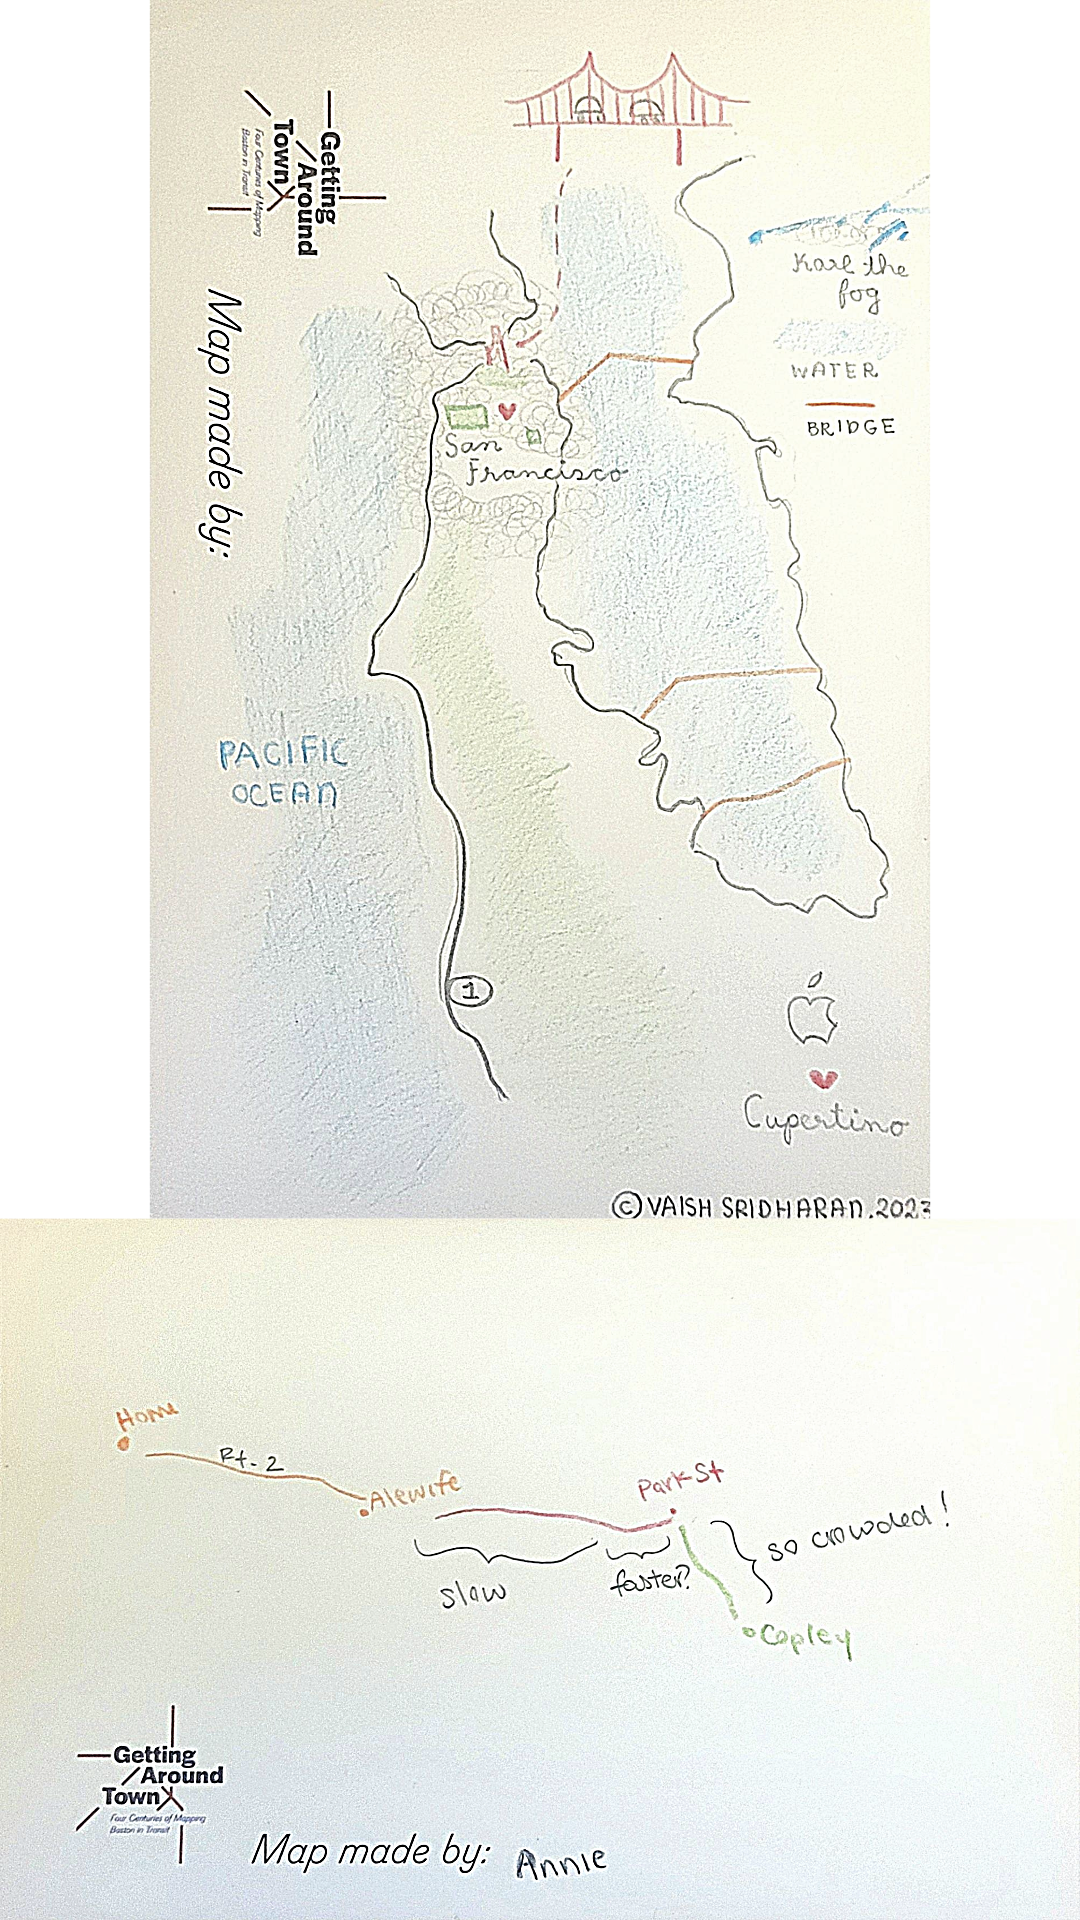 Getting
Around
Town
Four Centuries of Mapping
Boston in Transit
Map made by:
Karl the
fog
WATER
BRIDGE
San
Francisco
PACIFIC
OCEAN
1
Cupertino
© VAISH SRIDHARAN.2023
Home
Rt-2
Alewife
Park St
slow
faster?
so crowded!
Copley
Getting
Around
Town
Four Centuries of Mapping
Boston in Transit
Map made by: Annie